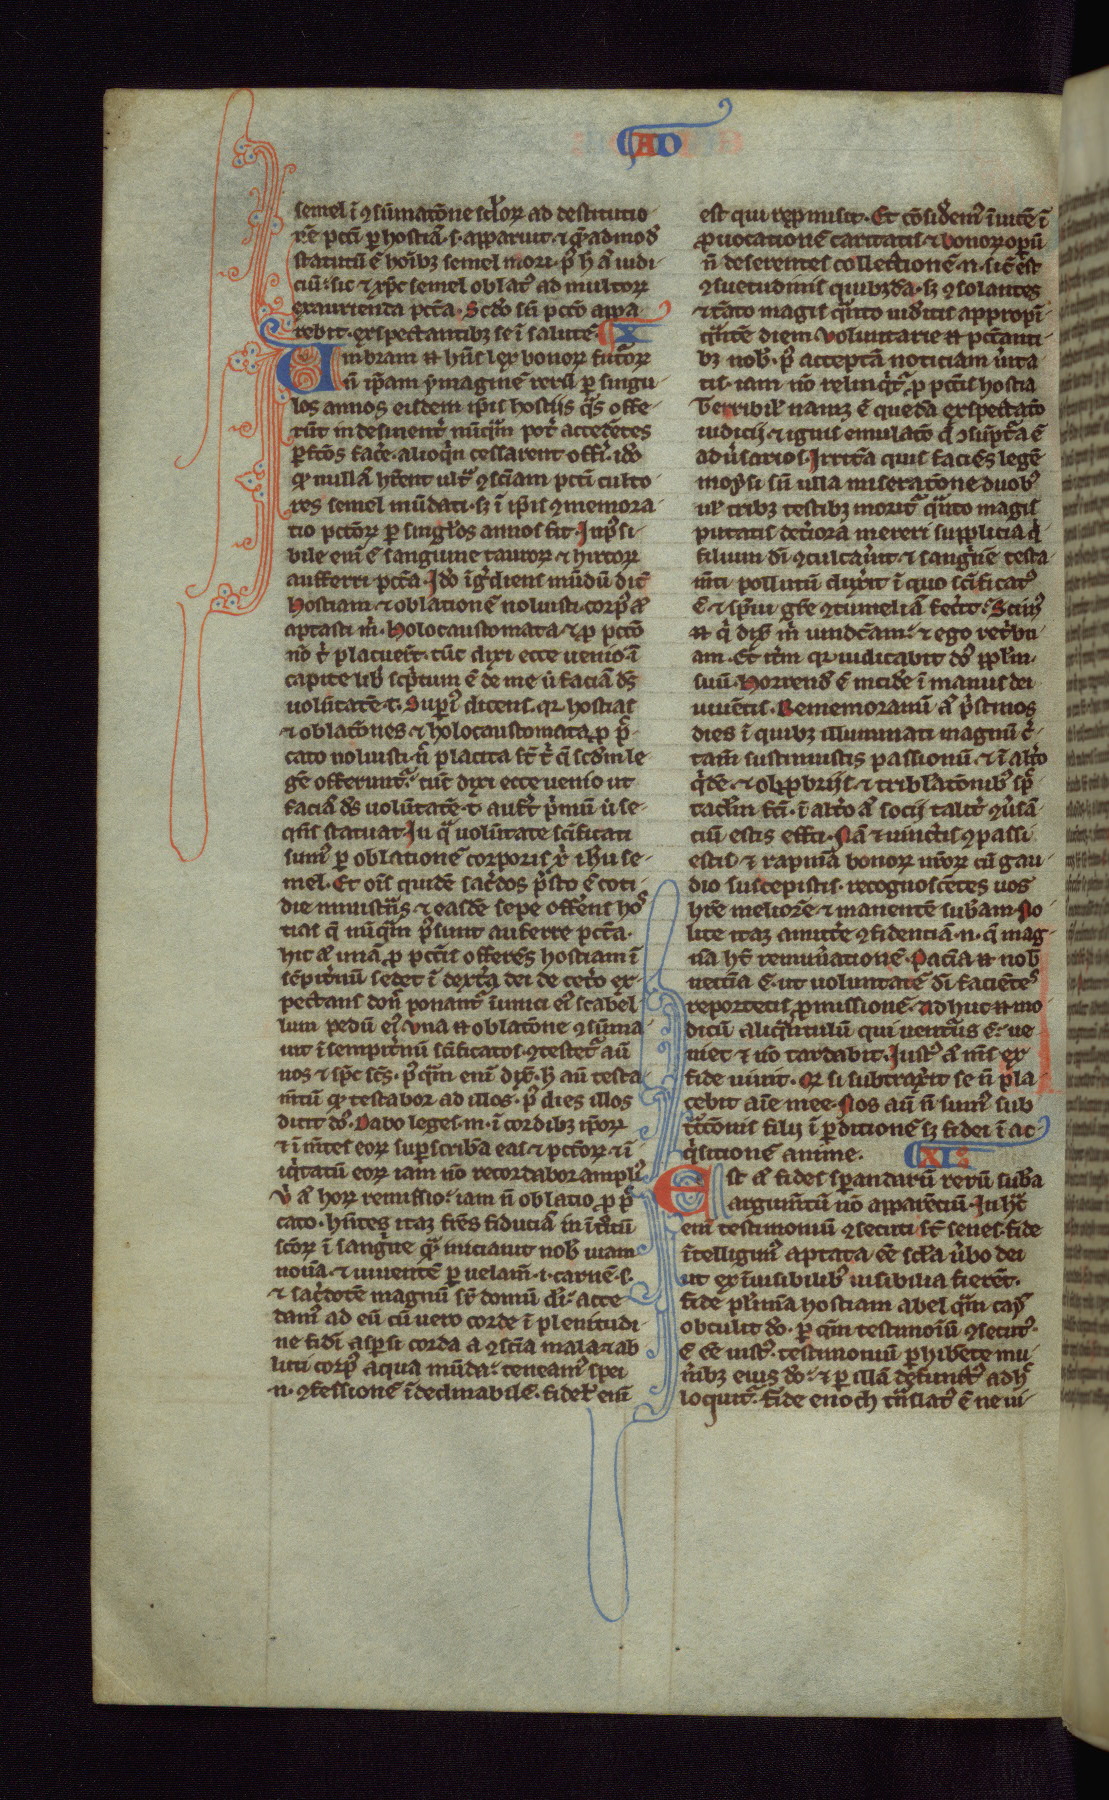 AD
semel ī ꝯsūmatōne sc̄lorꝝ ad destitutio
nē pctī ꝑ hostiā. s. apparuit. ⁊ qͣ̄admodū
statutū ē hoībꝫ semel mori. pꝰ h̄ aū iudi
ciū: sic ⁊ xp̄c semel oblatꝰ ad multorꝝ
exaurienda pctā. Scd̄o sīn pctō appa
rebit. exspectantibꝫ se ī salutē. X
Umbram .n. hn̄s lex bonorꝝ futorꝝ
n̄ ip̄am ymaginē rerū ꝑ singu
los annos eisdem ip̄is hostijs qͣs offe
rūt indesinent̄ nūqͣ̄m pōt accedētes
ꝑfcōs facē. alioqͥn cessarent offī. ido
qꝫ nullā hr̄ent ult̄ ꝯsciam pctī culto
res semel mūdati. sꝫ ī ip̄is ꝯmemora
tio pctōrꝝ ꝑ singl̄os annos fit. Inp̄si
bile enī ē sanguine taurorꝝ ⁊ hircorꝝ
aufferri pctā. Ido īgͥdiens mūdū dic̄
hostiam ⁊ oblationē noluisti. corpꝰ aū
aptasti m̄. holocaustomata ⁊ ꝓ pctō
nō t̄ placuer̄t. tūc dixi ecce uenio. ī
capite lib̄ sc̄ptum ē de me ū faciā dꝫ
uolūtatē. t. Supͥ dicens. qꝛ hostias
⁊ oblatōnes ⁊ holocaustomata ꝓ pc̄
cato noluisti. n̄ placita st̄ t̄ q̄ scd̄m le
gē offeruntͬ. tūc dixi ecce uenio ut
faciā dꝫ uolūtatē. t. aufͭ pͥmū ū se
qn̄s statuat. In qͣ uolūtate scīficati
sumꝰ ꝑ oblationē corporis xͥ ih̄u se
mel. Et oīs quidē sacͬdos pͤsto ē coti
die ministͣns ⁊ easdē sepe offerēs hos
tias q̄ nūqͣ̄m pn̄t auferre pctā.
hic aū unā ꝓ pctīs offerēs hostiam ī
sēpit̄nū sedet ī dextͬa dei de cetͦo ex
pectans don̄ ponantͬ īimici eꝰ scabel
lum pedū eꝰ. Vna .n. oblatōne ꝯsūma
uit ī sempit̄nū scīficatos. ꝯtestetͬ aū
nos ⁊ sp̄c sc̄s. pꝰqͣ̄m enī dix̄. h̄ aū testa
m̄tū qꝫ testabor ad illos. pꝰ dies illos
dicit dō. Dabo leges. m. ī cordibꝫ ip̄orꝝ
⁊ ī m̄tes eorꝝ suꝑscribā eas ⁊ pctōrꝝ ⁊ ī
iqͥtatū eorꝝ iam nō recordabor amplꝰ
ū aū horꝝ remissio. iam n̄ oblatio ꝓ pc̄
cato. hn̄tes itaꝫ fr̄es fiduciā in īt̄tū
scōrꝝ ī sangͥne qͣ̄ iniciauit nob̄ uiam
nouā ⁊ uiuentē ꝑ velam̄. i. carnē. s.
⁊ sacͬdotē magnū sꝛ domū dī. acce
damꝰ ad eū cū uero corde ī plenitudi
ne fidī aspͬsi corda a ꝯscīa mala ⁊ ab
luti corpꝰ aqua mūda. teneamꝰ spei
n. ꝯfessionē īdeclinabilē. fidel̄ enī
est qui repͬmisit. Et cōsid̄emꝰ īuicē ī
ꝓuocationē caritatis ⁊ bonorꝝ oꝑū
n̄ deserentes collectionē. n. sic̄ est
ꝯsuetudinis quibꝫdā. sꝫ ꝯsolantes
⁊ tāto magis qͣ̄to uid̄itis appropī
qͣ̄tē diem. Voluntarie .n. pctānti
bꝫ nob̄. pꝰ acceptā noticiam ūita
tis. iam nō relinqͥtͬ ꝓ pctīs hostia
Terribilꝰ namꝫ ē quedā exspectatō
iudicij. ⁊ ignis emulatō q̄ ꝯsūptͬa ē
adū̄sarios. Irritā quis faciēs legē
moysi sn̄ ulla miseratone duobꝰ
ul̄ tribꝫ testibꝫ moritͬ qͣ̄to magis
putatis det̄iora mereri supplicia qͥ
filium dī ꝯculcau̇it ⁊ sangͥnē testa
m̄ti pollutū dix̄it ī quo scīficatꝰ
ē ⁊ sp̄ui gr̄e ꝯtumeliā fec̄it. Scimꝰ
.n. qͥ dix̄ m̄ uindc̄am. ⁊ ego ret̄bu
am. Et it̄m qꝛ iudicabit dō pp̄lm.
suū. Horrend̄ ē incidē ī manus dei
uiuētis. Rememoramī aū pͥstinos
dies ī quibꝫ illuminati magnū c̄
tam̄ sustinuistis passionū. ⁊ ī alt̄o
qͥdē. ⁊ obꝓbrijs. ⁊ tribl̄atōnibꝰ spͨ
tacl̄m fcī. ī alt̄o aū socij talit̄ ꝯūsā
ciū estis effcī. Nā ⁊ uinctis ꝯpassi
estis. ⁊ rapinā bonorꝝ ur̄orꝝ cū gau
dio suscepistis. recognoscētes uos
hr̄e meliorē ⁊ manentē subam̄. No
lite itaꝫ amitt̄e ꝯfidentiā. n. q̄ mag
nā hꝫ remūationē. Paciā .n. nob̄
necciā ē. ut uoluntatē dī faciētes
reportetis ꝓmissionē. adhuc .n. mo
dicū aliqͣ̄ntulū qui ventͬus ē. ue
niet ⁊ nō tardabit. Iustꝰ aū m̄s ex
fide uiuit. Qꝛ si subtrax̄it se n̄ pla
cebit aīe mee. Nos aū n̄ sumꝰ sub
tͣctōnis filij ī ꝑditionē sꝫ fidei ī ac
qͥsitionē anime. XI
Est aū fides sperandarū rerū subā
argum̄tū nō apparētiū. In hͨ
enī testimoniū ꝯsecuti st̄ senes. fide
ītelligimꝰ aptata eē scl̄a ūbo dei
ut ex īuisibilibꝰ uisibilia fierēt.
fide plͬimā hostiam abel qͣ̄m cayn
obtulit dō. ꝑ qͣ̄m testimoīū ꝯsecutꝰ.
ē eē iustꝰ. testimonium ꝑhibēte mu
n̄ibꝫ eius dō. ⁊ ꝑ illā defunctꝰ adh̄
loquitͬ. fide enoch tͣnslatꝰ ē ne ui